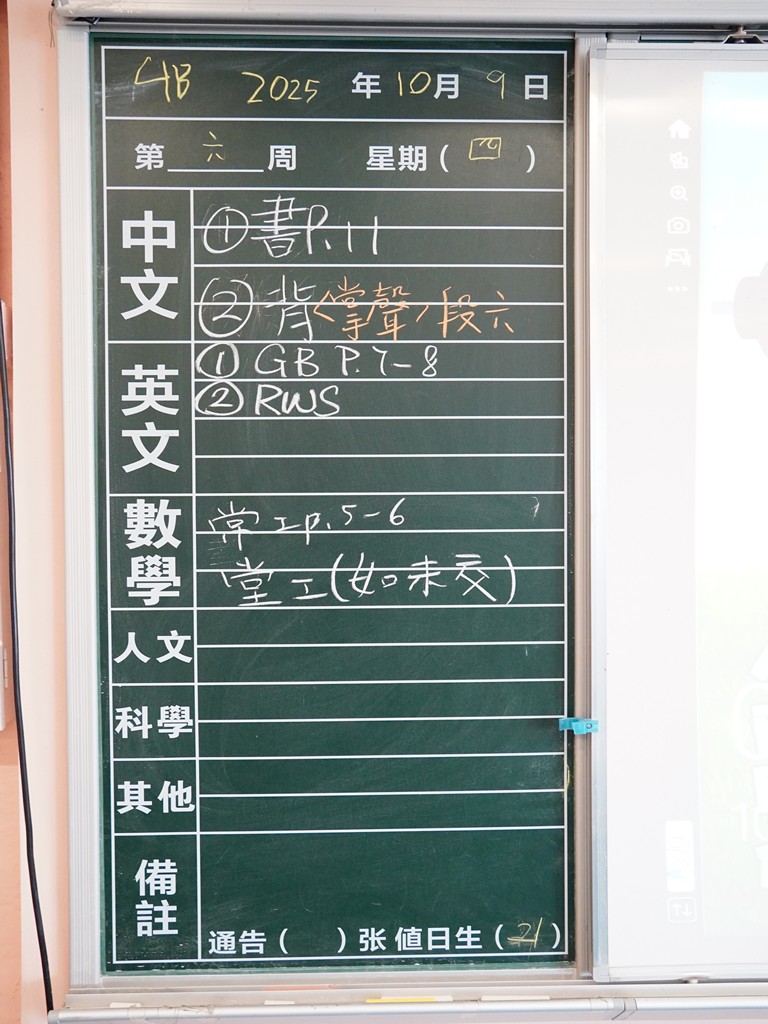 4B 2025 年 10 月 9 日
第 六 周 星期 ( 四 )
中文
① 書P.11
② 背〈掌聲〉段六
英文
① GB P.7-8
② RWS
數學
常工p.5-6
堂工(如未交)
人文
科學
其他
備註
通告 ( ) 张 値日生 ( 21 )